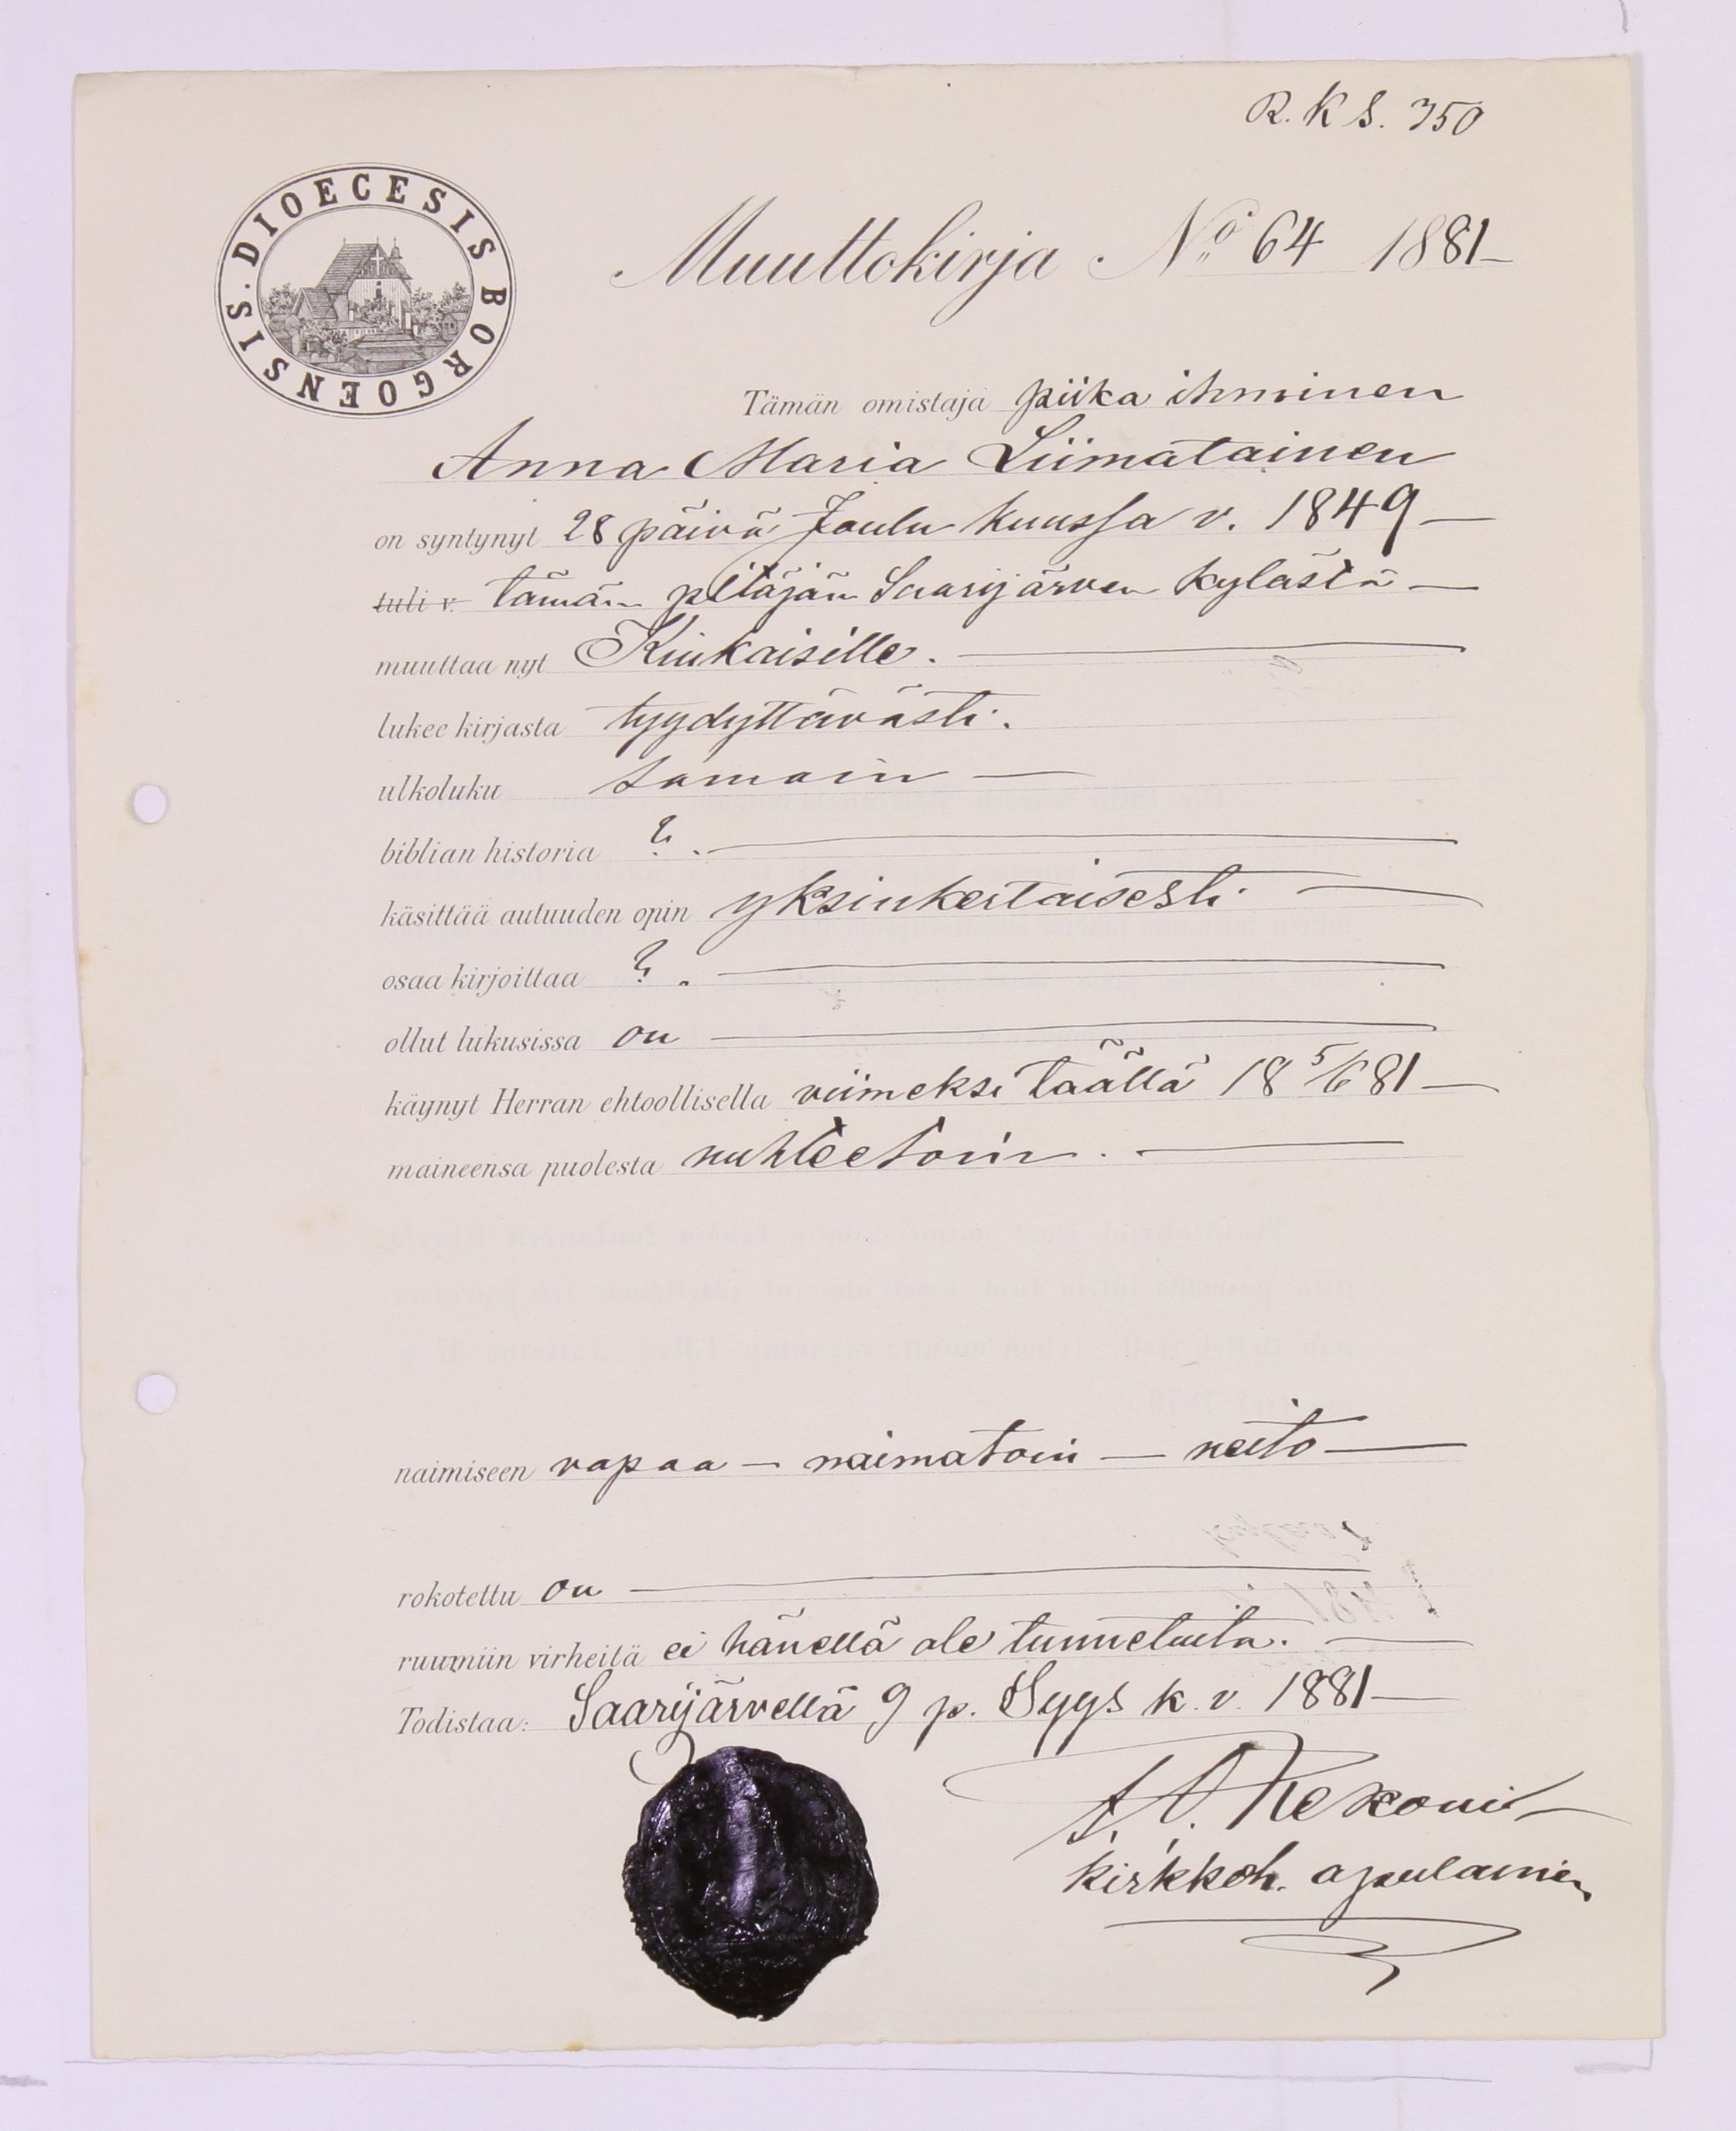 R. K S. 350
DIOECESIS BORGOENSIS.
Muuttokirja No 64 1881
Tämän omistaja piika ihminen
Anna Maria Liimatainen
on syntynyt 28 päivä Joulu kuussa v. 1849
tuli v. tämän pitäjän Saarijärven kylästä
muuttaa nyt Kiukaisille.
lukee kirjasta tyydyttävästi.
ulkoluku samoin
biblian historia ?.
käsittää autuuden opin yksinkertaisesti
osaa kirjoittaa ?.
ollut lukusissa on
käynyt Herran ehtoollisella viimeksi täällä 18 5/6 81
maineensa puolesta nuhteetoin.
naimiseen vapaa – naimatoin – neito
rokotettu on
ruumiin virheitä ei hänellä ole tunnetuita.
Todistaa: Saarijärvellä 9 p. Syys k. v. 1881
kirkkoh. apulainen